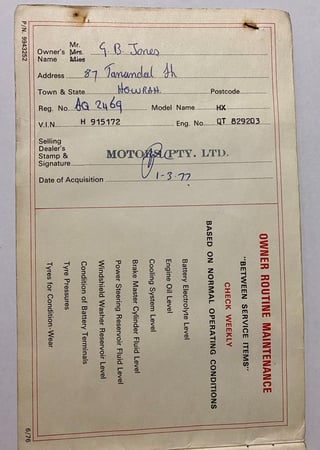 P/N. 9943252
Mr.
Owner's Mrs. G B Jones
Name Miss
Address 87 Tanundal St
Town & State HOWRAH. Postcode
Reg. No. AQ 2469 Model Name HX
V.I.N. H 915172 Eng. No. QT 829203
Selling
Dealer's
Stamp & MOTORS PTY. LTD.
Signature
Date of Acquisition 1-3-77
OWNER ROUTINE MAINTENANCE
"BETWEEN SERVICE ITEMS"
CHECK WEEKLY
BASED ON NORMAL OPERATING CONDITIONS
Battery Electrolyte Level
Engine Oil Level
Cooling System Level
Brake Master Cylinder Fluid Level
Power Steering Reservoir Fluid Level
Windshield Washer Reservoir Level
Condition of Battery Terminals
Tyre Pressures
Tyres for Condition-Wear
6/76